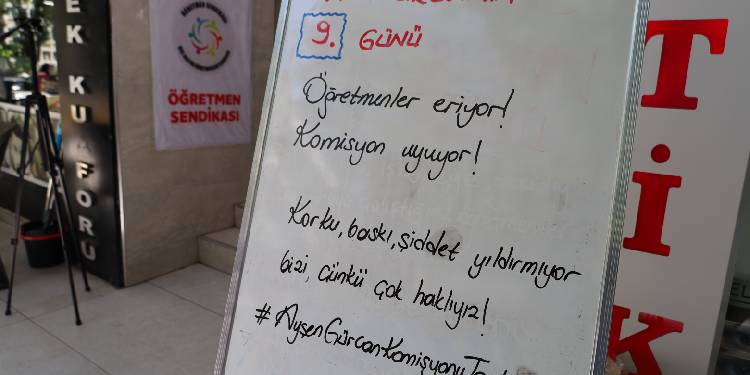 9. GÜNÜ
Öğretmenler eriyor!
Komisyon uyuyor!
Korku, baskı, şiddet yıldırmıyor
bizi, çünkü çok haklıyız!
#AyşenGürcanKomisyonu
ÖĞRETMEN
SENDİKASI
EK KUAFÖRÜ
TİK